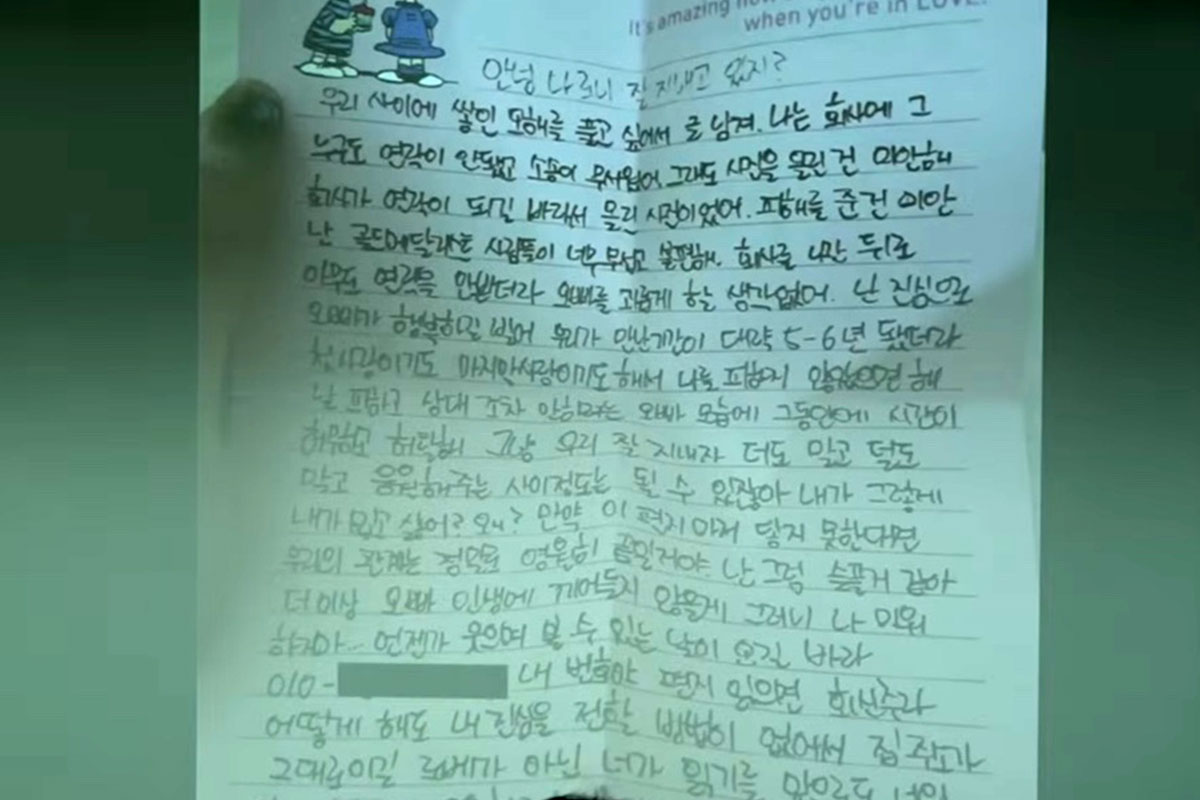 It's amazing how
when you're in LOVE!
안녕 나 론니 잘 지내고 있지?
우리 사이에 쌓인 오해를 풀고 싶어서 글 남겨. 나는 회사에 그
누구도 연락이 안됐고 소송이 무서웠어 그래도 사진을 올린건 미안해
회사가 연락이 되길 바라서 올린 사진이었어. 피해를 준건 미안
난 골드메달리스트 사람들이 너무 무섭고 불편해. 회사를 나간 뒤로
아무도 연락을 안받더라 오빠를 괴롭게 할 생각없어. 난 진심으로
오빠가 행복하길 빌어 우리가 만난기간이 대략 5-6년 됐더라
첫사랑이기도 마지막사랑이기도 해서 나를 피하지 않았으면 해
날 피하고 상대 조차 안하려는 오빠 모습에 그동안에 시간이
허무하고 허탈해 그냥 우리 잘 지내자 더도 말고 덜도
말고 응원해주는 사이정도는 될 수 있잖아 내가 그렇게
내가 밉고 싫어? 왜? 만약 이 편지마저 닿지 못한다면
우리의 관계는 정말로 영원히 끝일거야 난 그럼 슬플거 같아
더이상 오빠 인생에 끼어들지 않을게 그러니 나 미워
하지마... 언젠가 웃으며 볼 수 있는 날이 오길 바라
010- 내 번호야 편지 읽으면 회신주라
어떻게 해도 내 진심을 전할 방법이 없어서 집주소가
그대로이길 가 아닌 너가 읽기를